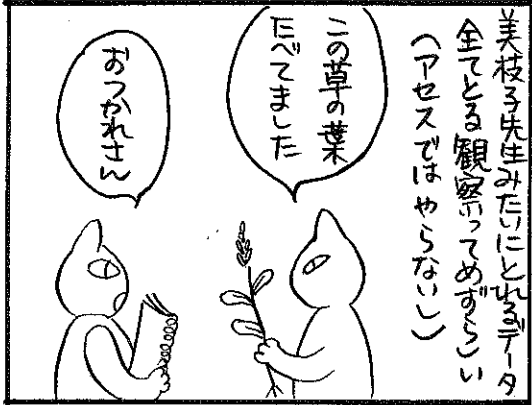 美枝子先生みたいにとれるデータ
全てとる観察ってめずらしい
(アセスではやらないし)
この草の葉
たべてました
おつかれさん